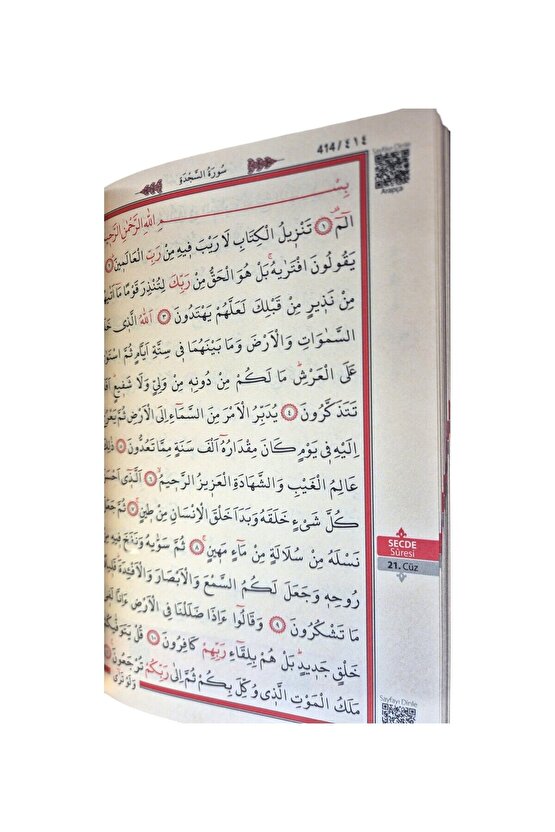 414/٤١٤
سُورَةُ السَّجْدَةِ
Sayfayı Dinle
Arapça
بِسْــــمِ اللّٰهِ الرَّحْمٰنِ الرَّحٖيمِ
الٓمٓ ۝١ تَنْزٖيلُ الْكِتَابِ لَا رَيْبَ فٖيهِ مِنْ رَبِّ الْعَالَمٖينَ
يَقُولُونَ افْتَرٰيهُ بَلْ هُوَ الْحَقُّ مِنْ رَبِّكَ لِتُنْذِرَ قَوْمًا مَٓا
مِنْ نَذٖيرٍ مِنْ قَبْلِكَ لَعَلَّهُمْ يَهْتَدُونَ ۝٣ اَللّٰهُ الَّذٖى
السَّمٰوَاتِ وَالْاَرْضَ وَمَا بَيْنَهُمَا فٖى سِتَّةِ اَيَّامٍ ثُمَّ
عَلَى الْعَرْشِ مَا لَكُمْ مِنْ دُونِهٖ مِنْ وَلِىٍّ وَلَا شَفٖيعٍ
تَتَذَكَّرُونَ ۝٤ يُدَبِّرُ الْاَمْرَ مِنَ السَّمَٓاءِ اِلَى الْاَرْضِ ثُمَّ
اِلَيْهِ فٖى يَوْمٍ كَانَ مِقْدَارُهُٓ اَلْفَ سَنَةٍ مِمَّا تَعُدُّونَ ۝٥
عَالِمُ الْغَيْبِ وَالشَّهَادَةِ الْعَزٖيزُ الرَّحٖيمُ ۝٦ اَلَّذٖٓى
كُلَّ شَىْءٍ خَلَقَهُ وَبَدَاَ خَلْقَ الْاِنْسَانِ مِنْ طٖينٍ ۝٧ ثُمَّ
نَسْلَهُ مِنْ سُلَالَةٍ مِنْ مَٓاءٍ مَهٖينٍ ۝٨ ثُمَّ سَوّٰيهُ وَنَفَخَ فٖيهِ
رُوحِهٖ وَجَعَلَ لَكُمُ السَّمْعَ وَالْاَبْصَارَ وَالْاَفْـِٔدَةَ
مَا تَشْكُرُونَ ۝٩ وَقَالُٓوا ءَاِذَا ضَلَلْنَا فِى الْاَرْضِ
خَلْقٍ جَدٖيدٍ بَلْ هُمْ بِلِقَٓاءِ رَبِّهِمْ كَافِرُونَ ۝١٠ قُلْ
مَلَكُ الْمَوْتِ الَّذٖى وُكِّلَ بِكُمْ ثُمَّ اِلٰى رَبِّكُمْ تُرْجَعُونَ
وَلَوْ تَرٰٓى
SECDE
Sûresi
21. Cüz
Sayfayı Dinle